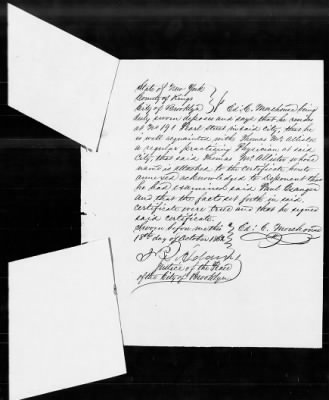 State of New York
County of Kings
City of Brooklyn } Ed: C. Morehouse being
duly sworn deposes and says that he resides
at No 191 Pearl Street in said City, that he
is well acquainted with Thomas McAllister
a regular practicing Physician at said
City, that said Thomas McAllister whose
name is attached to the certificate, hereto
annexed acknowledged to deponent that
he had examined said Paul Granger
and that the facts set forth in said
certificate were true and that he signed
said certificate.
Sworn before me this } Ed: C. Morehouse
18th day of October 1862
Justice of the Peace
of the City of Brooklyn